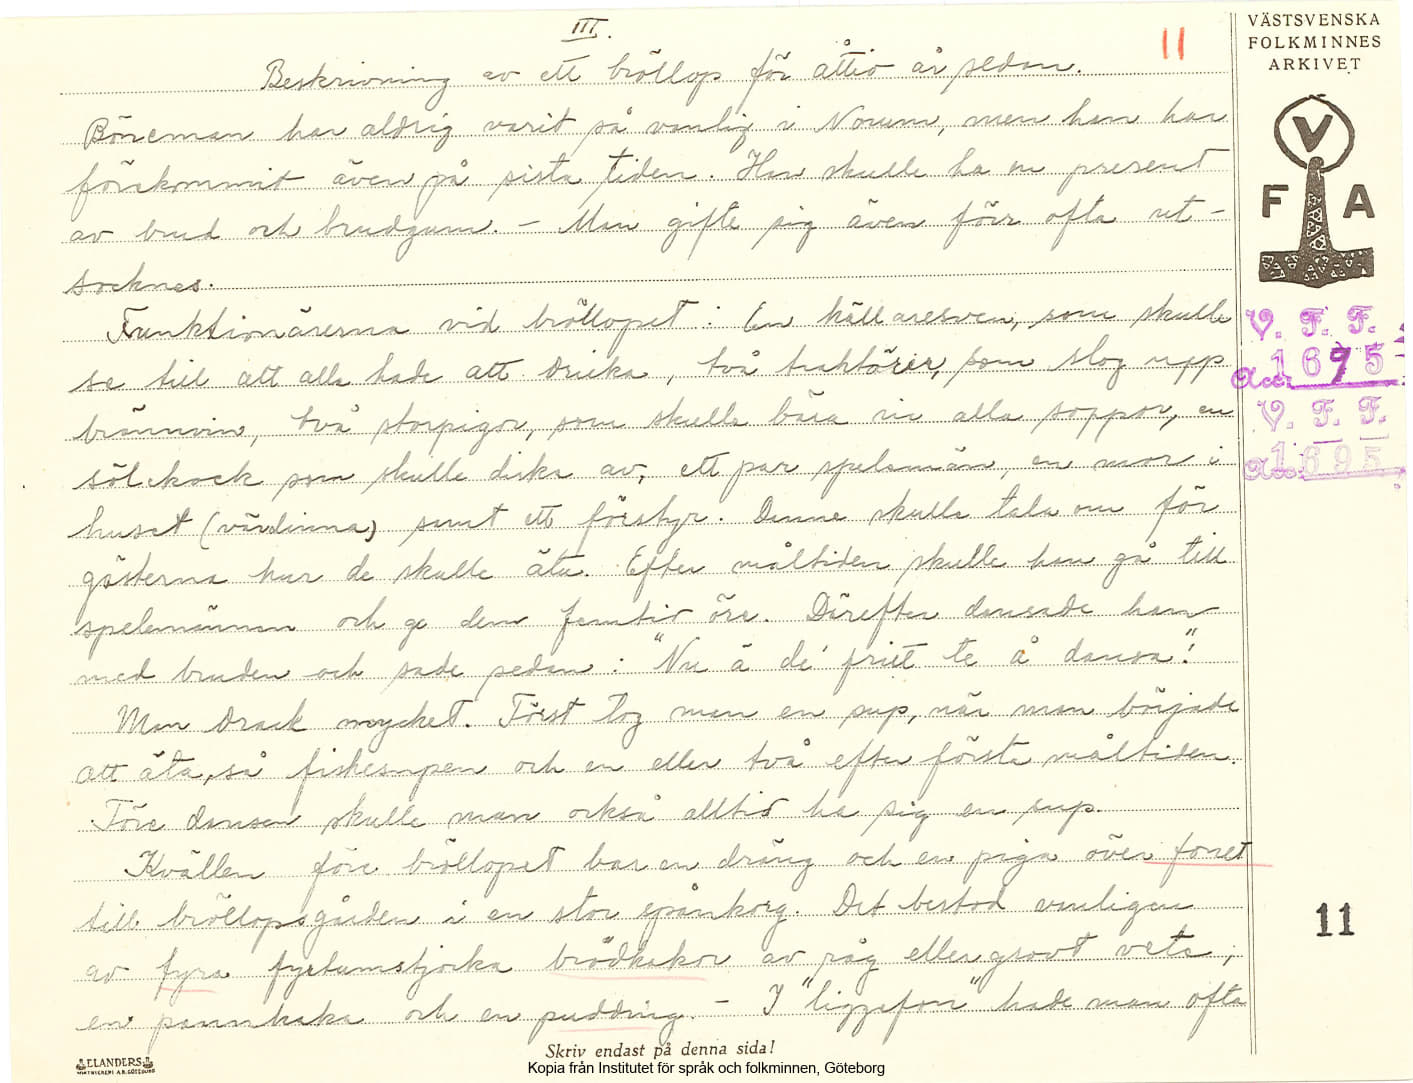 III.
11
Beskrivning av ett bröllop för åttio år sedan.
Böneman har aldrig varit så vanlig i Norum, men han har
förekommit även på sista tiden. Han skulle ha en present
av brud och brudgum. – Man gifte sig även förr ofta ut-
socknes.
Funktionärerna vid bröllopet: En källaresven, som skulle
se till att alla hade att dricka, två traktörer, som slog upp
brännvin, två storpigor, som skulle bära in alla soppor, en
sölekock som skulle diska av, ett par spelemän, en mor i
huset (värdinna) samt ett förstyr. Denne skulle tala om för
gästerna hur de skulle äta. Efter måltiden skulle han gå till
spelemännen och ge dem femtio öre. Därefter dansade han
med bruden och sade sedan: "Nu ä de' friet te å dansa."
Man drack mycket. Först tog man en sup, när man började
att äta, så fiskesupen och en eller två efter första måltiden.
Före dansen skulle man också alltid ha sig en sup.
Kvällen före bröllopet bar en dräng och en piga över fonet
till bröllopsgården i en stor spånkorg. Det bestod vanligen
av fyra fyrtumstjocka brödkakor av råg eller grovt vete,
en pannkaka och en pudding. – I "liggefon" hade man ofta
VÄSTSVENSKA
FOLKMINNES
ARKIVET
V
F A
V. F. F.
Acc. 1695
V. F. F.
Acc. 1695
11
ELANDERS
Skriv endast på denna sida!
Kopia från Institutet för språk och folkminnen, Göteborg